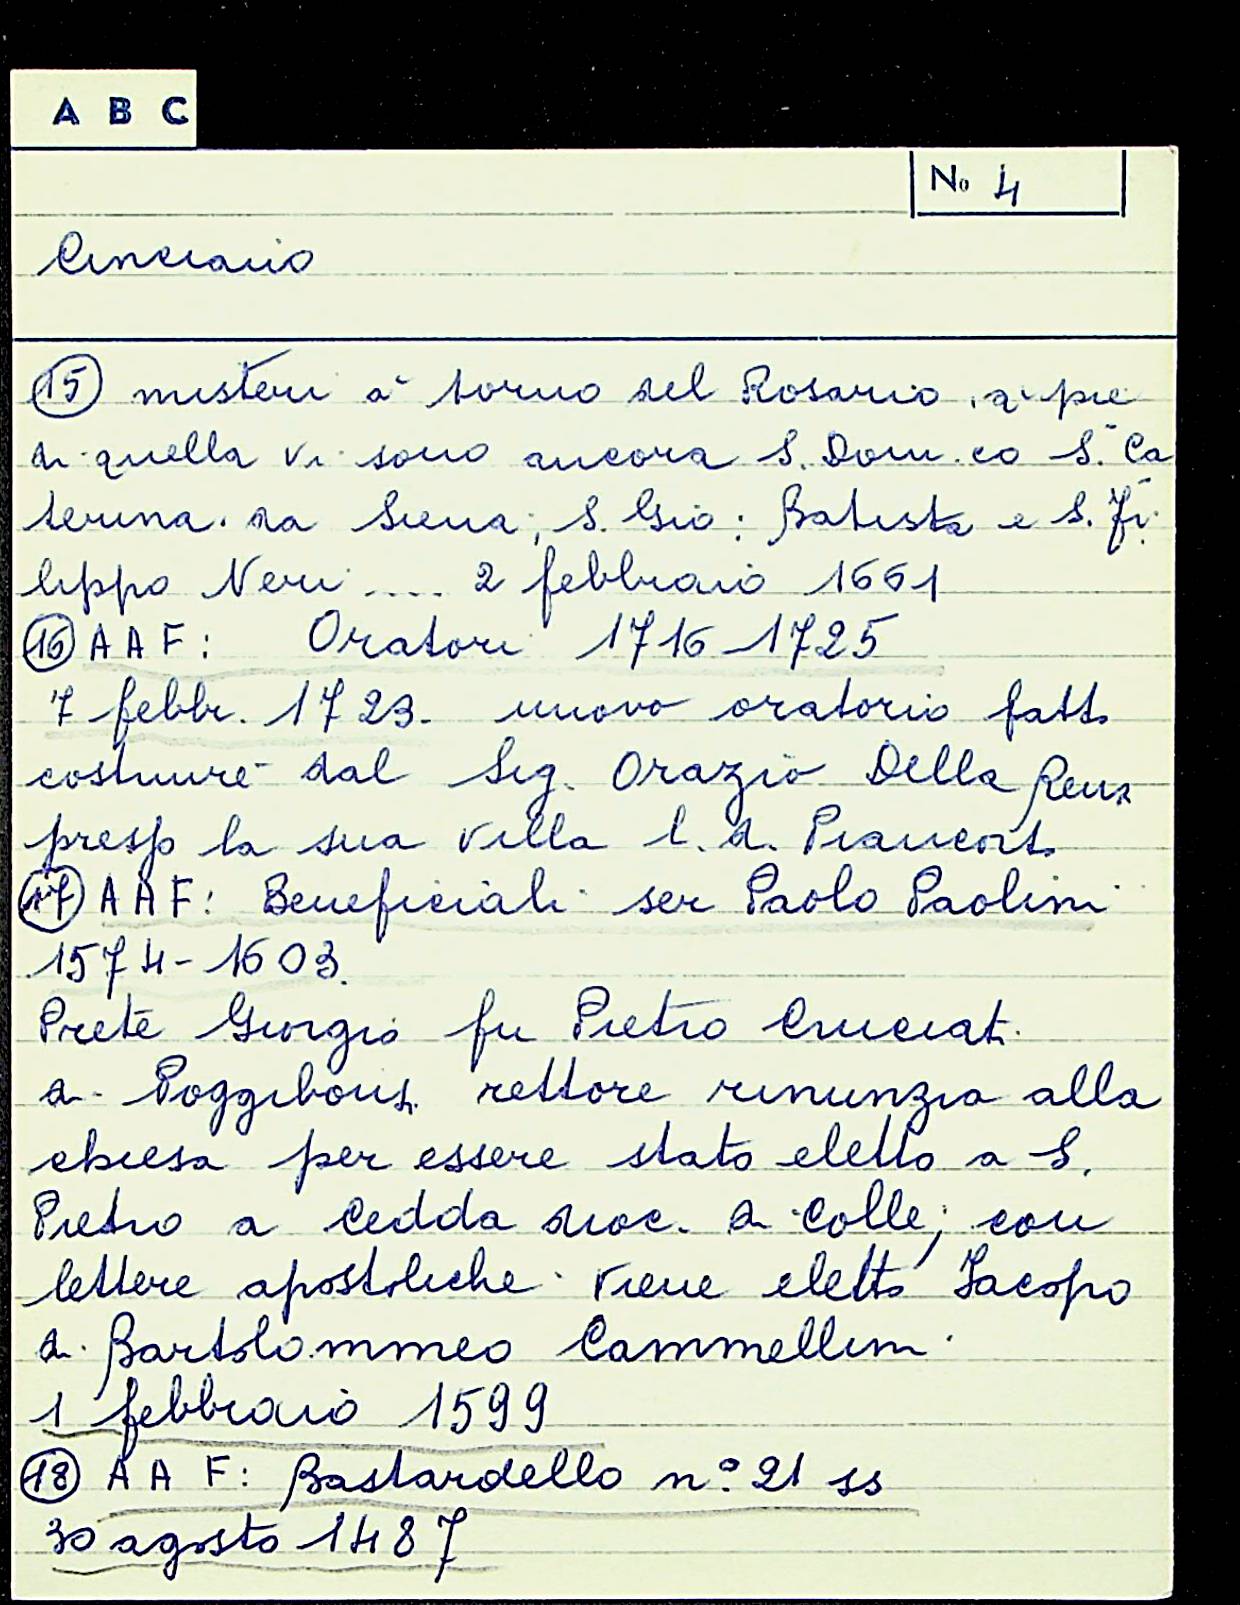 A B C
No 4
Cinciano
(15) misteri a torno del Rosario, a pie
di quella vi sono ancora S. Dom.co S. Ca
terina da Siena; S. Gio: Batista e S. Fi
lippo Neri .... 2 febbraio 1661
(16) AAF: Oratori 1716-1725
7 febbr. 1723. nuovo oratorio fatto
costruire dal Sig. Orazio Della Rena
presso la sua villa l. d.
(17) AAF: Beneficiali ser Paolo Paolini
1574-1603.
Prete Giorgio fu Pietro Cruciati
di Poggibonsi rettore rinunzia alla
chiesa per essere stato eletto a S.
Pietro a Cedda dioc. di Colle; con
lettere apostoliche viene eletto Jacopo
di Bartolommeo Cammellini
1 febbraio 1599
(18) AAF: Bastardello n.º 21 ss
30 agosto 1487